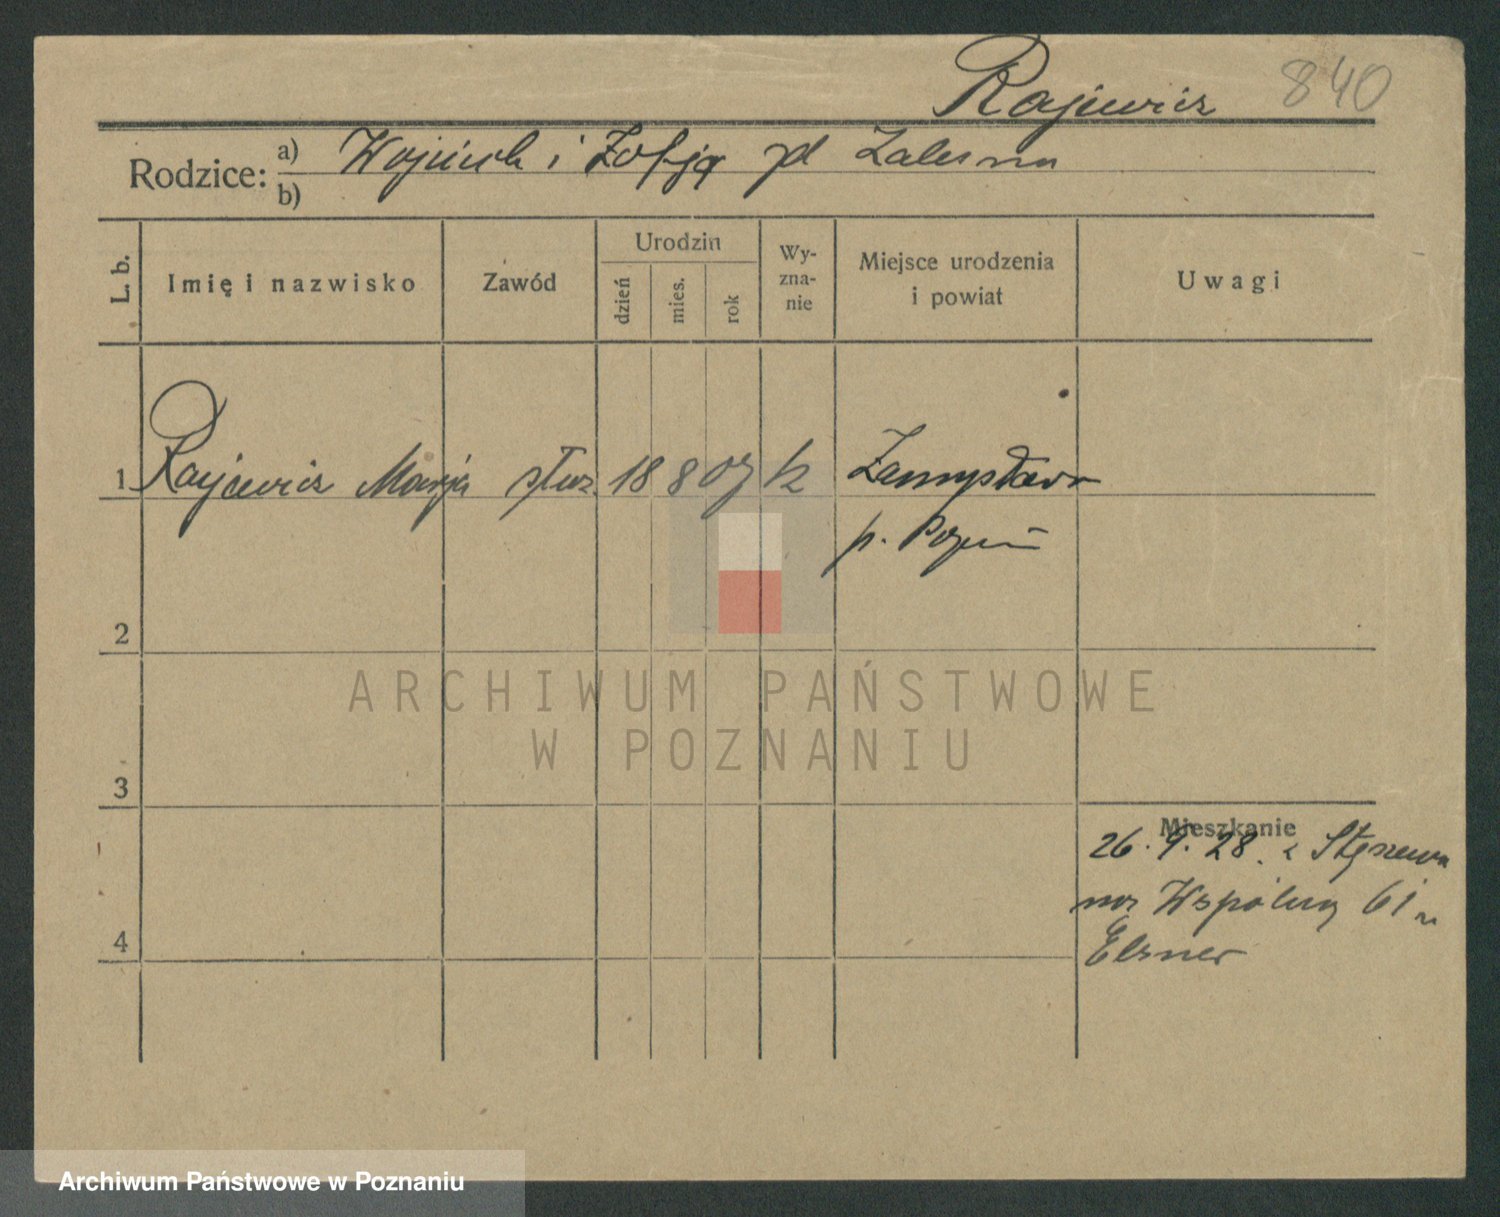 Rajewicz 840
Rodzice: a) Wojciech i Zofja zd Zalesna
b)
L. b. Imię i nazwisko Zawód Urodzin dzień mies. rok Wy-zna-nie Miejsce urodzenia i powiat Uwagi
1 Rajewicz Marja służ. 18 8 07 k Zemysław
p. Poznań
2
ARCHIWUM PAŃSTWOWE
W POZNANIU
3
Mieszkanie
26.9.28. z Stęszewa
na Wspólną 61 u
4 Elsner
Archiwum Państwowe w Poznaniu